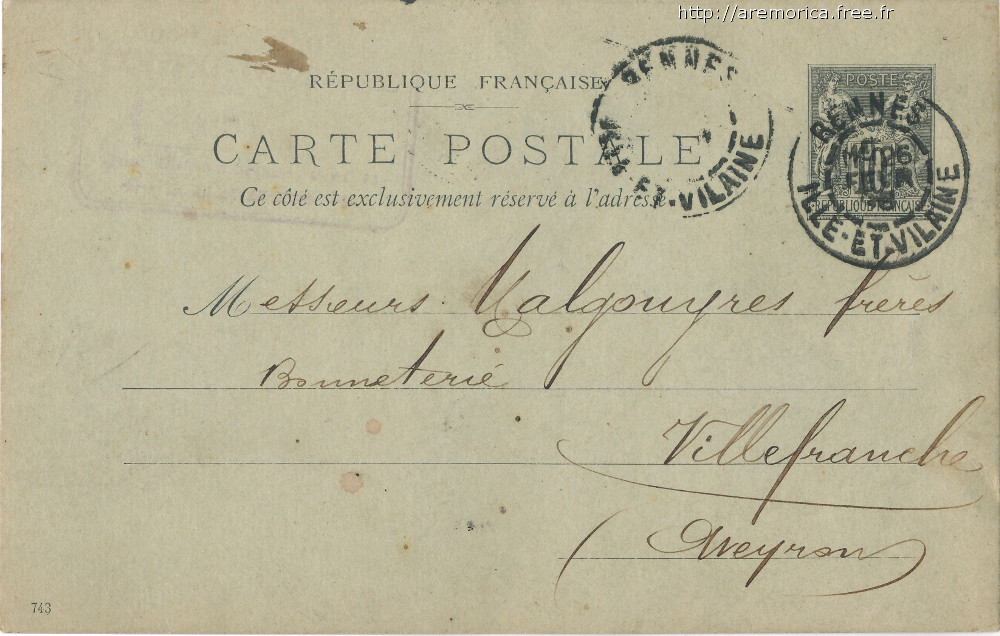 http://aremorica.free.fr
RÉPUBLIQUE FRANÇAISE
CARTE POSTALE
Ce côté est exclusivement réservé à l'adresse
RENNES
ILLE-ET-VILAINE
POSTE
RÉPUBLIQUE FRANÇAISE
RENNES
ILLE-ET-VILAINE
Messieurs Malgouyres frères
Bonneterie
Villefranche
(Aveyron)
743